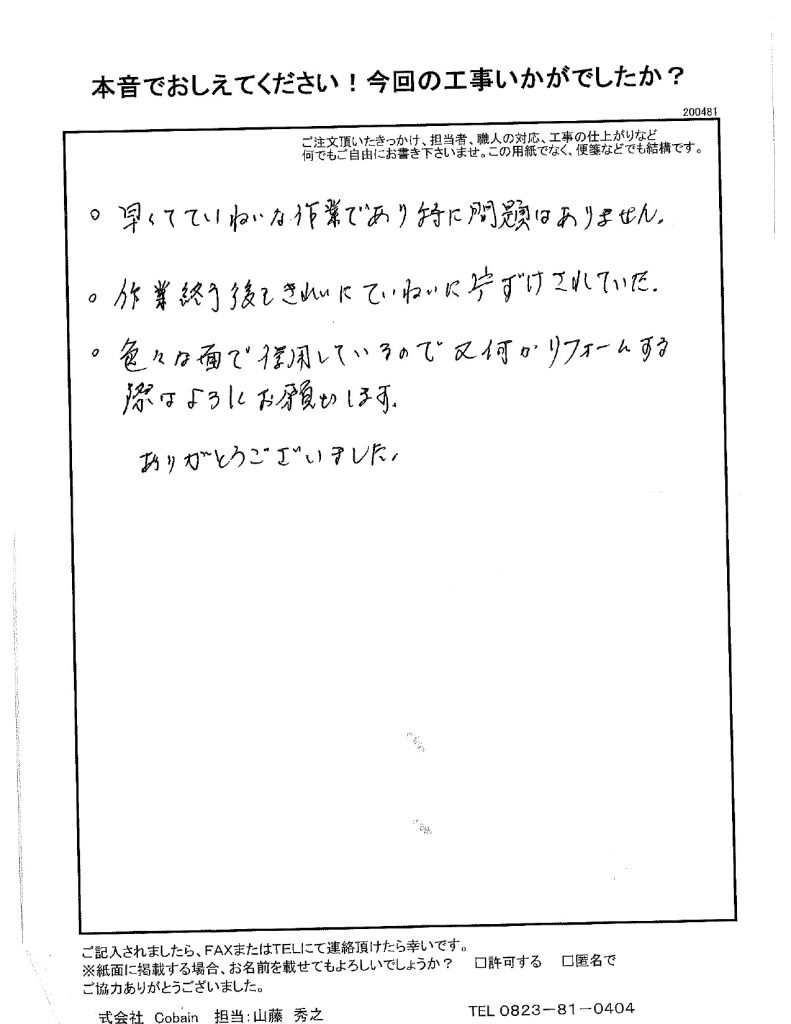 本音でおしえてください！今回の工事いかがでしたか？
200481
ご注文頂いたきっかけ、担当者、職人の対応、工事の仕上がりなど
何でもご自由にお書き下さいませ。この用紙でなく、便箋などでも結構です。
○ 早くてていねいな作業であり特に問題はありません。
○ 作業終了後もきれいにていねいに片ずけされていた。
○ 色々な面で信用しているので又何かリフォームする
際はよろしくお願いします。
ありがとうございました。
ご記入されましたら、FAXまたはTELにて連絡頂けたら幸いです。
※紙面に掲載する場合、お名前を載せてもよろしいでしょうか？ □許可する □匿名で
ご協力ありがとうございました。
式会社 Cobain 担当:山藤 秀之 TEL 0823－81－0404